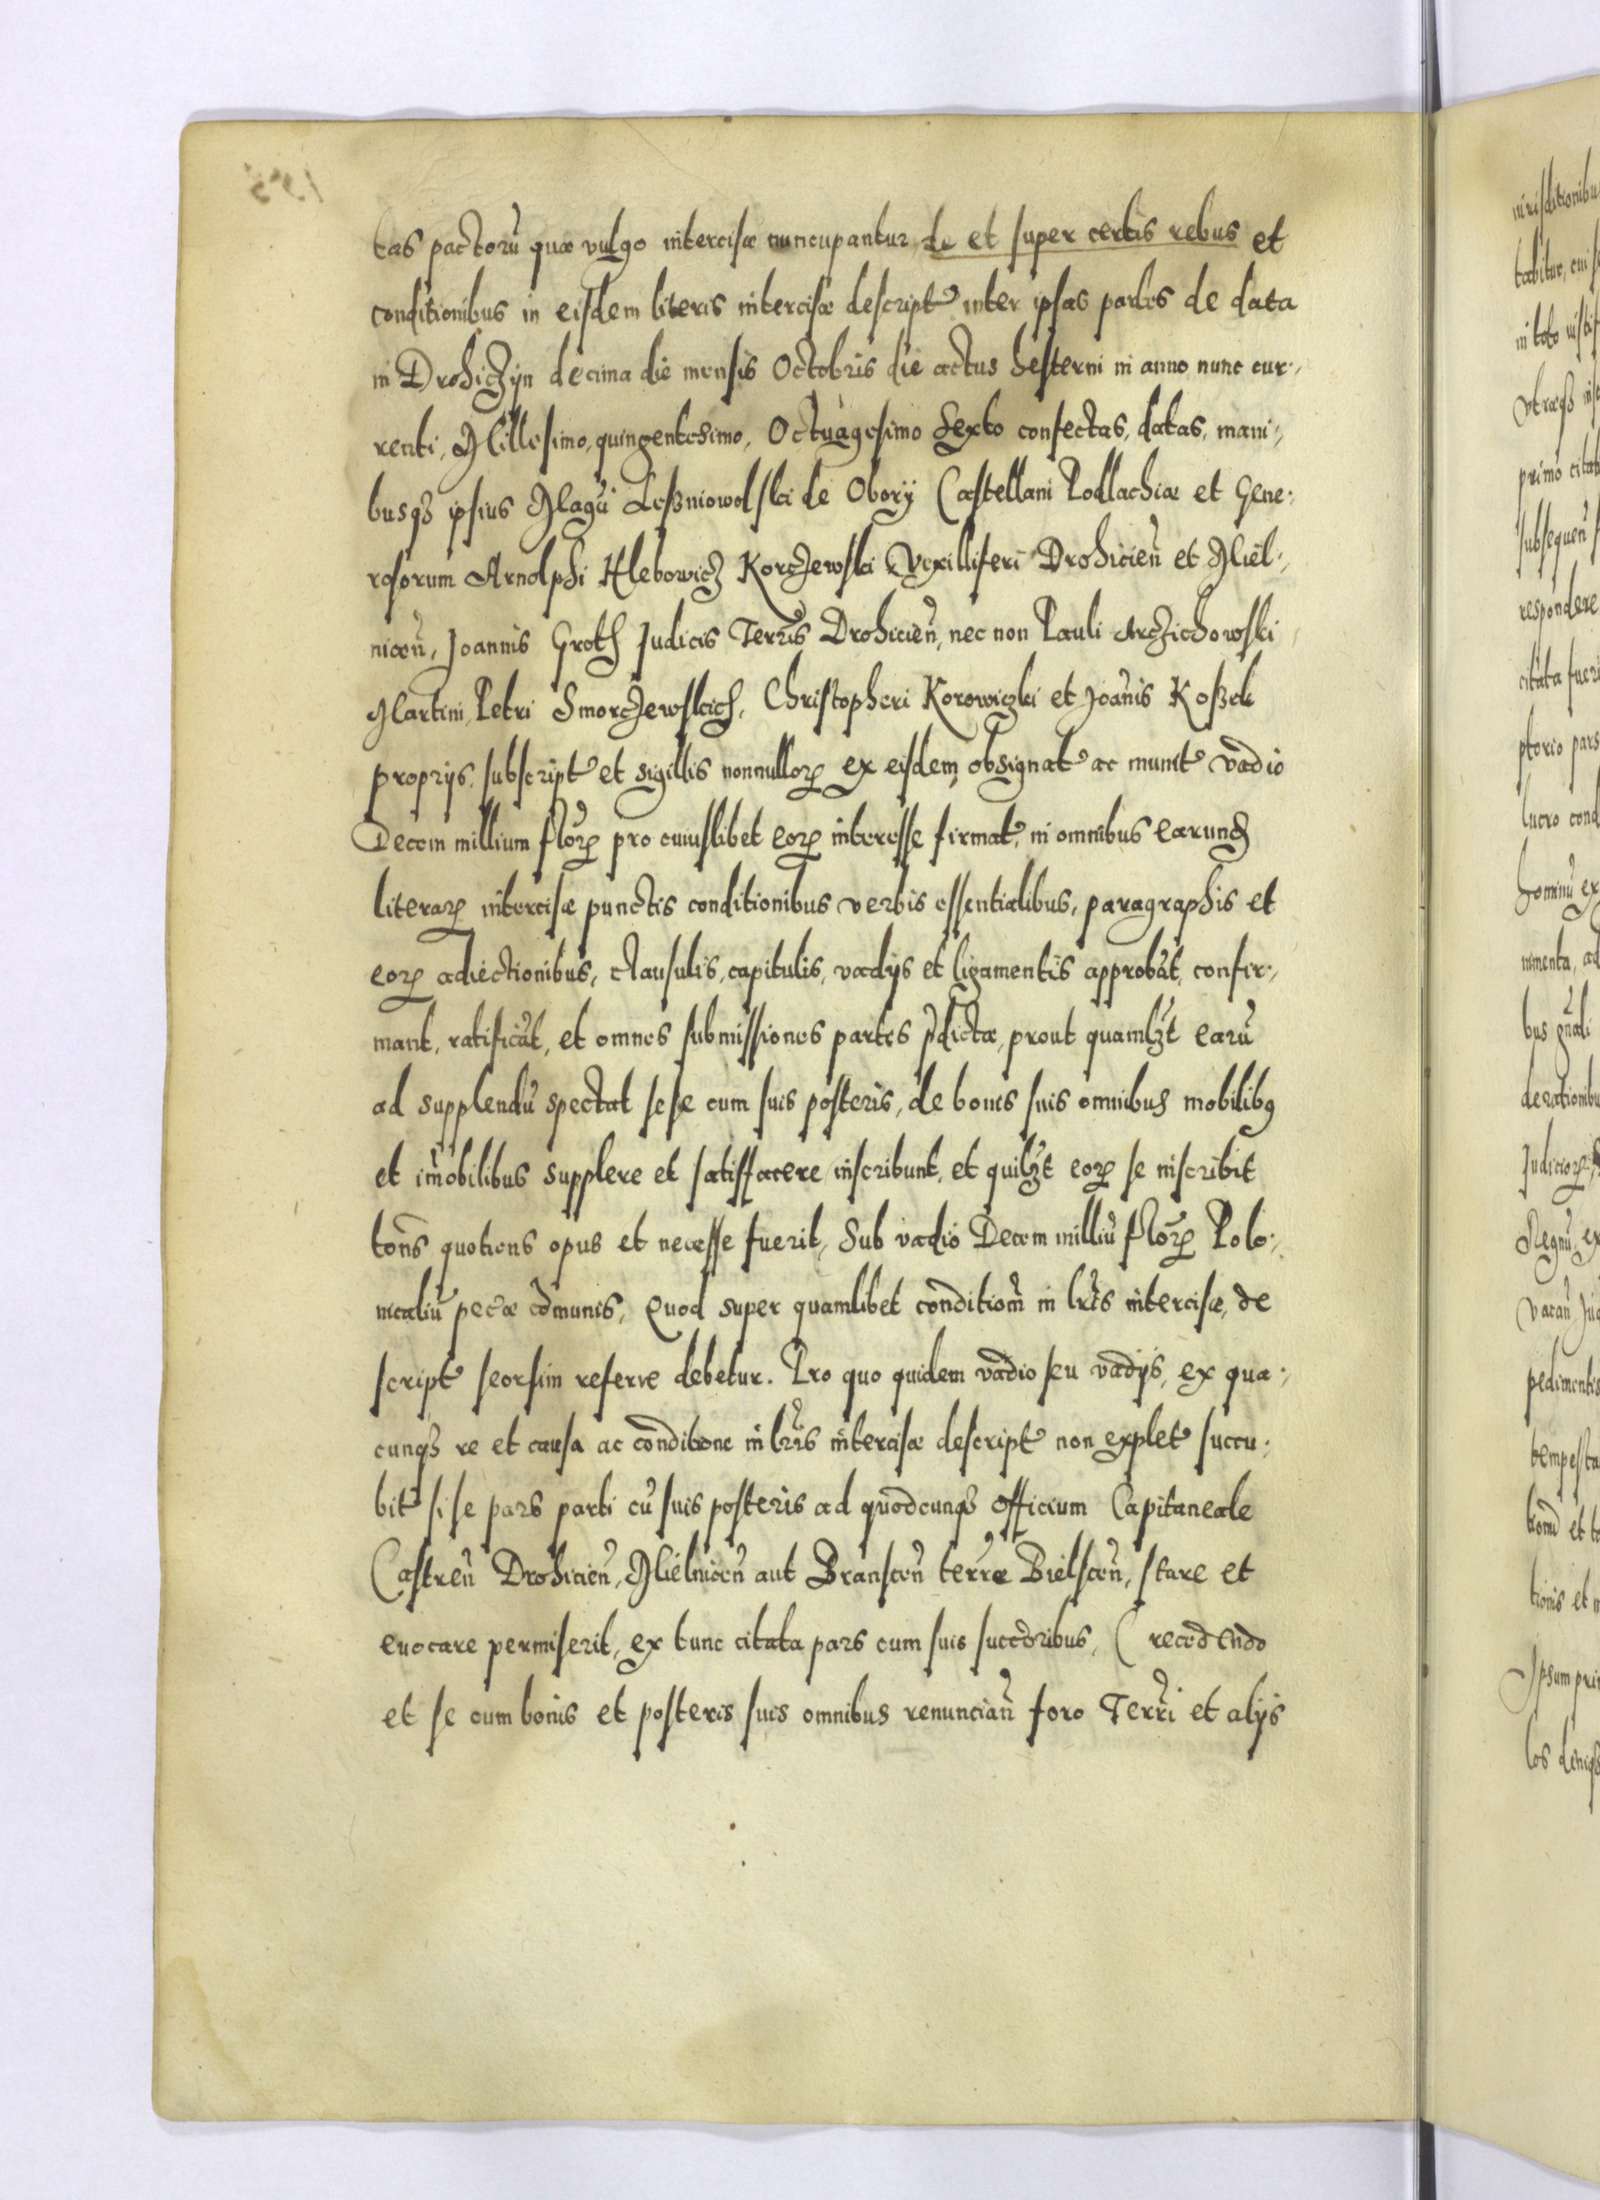 tas pactorū quæ vulgo intercisæ nuncupantur, de et super certis rebus et
conditionibus in eisdem literis intercisæ descript inter ipsas partes de data
in Drohiczyn decima die mensis Octobris die actus hesterni in anno nunc cur-,
renti, Millesimo, quingentesimo, Octuagesimo Sexto confectas, datas, mani-,
busqȝ ipsius Magci Leszniowolski de Obory Castellani Podlachiæ et Gene-
rosorum Arnolphi Hlebowicz Korczewski Vexilliferi Drohicien̄ et Miel-,
nicen̄, Joannis Groth Judicis Terris Drohicien̄, nec non Pauli Arczichowski
Martini, Petri Smorczewskich, Christopheri Korowiczki et Joānis Koszek
proprijs, subscript et sigillis nonnullorꝝ ex eisdem obsignat ac munit vadio
Decem millium florꝝ pro cuiuslibet eorꝝ interesse firmat, in omnibus earund
literarꝝ intercisæ punctis conditionibus verbis essentialibus, paragraphis et
eorꝝ adiectionibus, clausulis, capitulis, vadijs et ligamentis approbāt, confir-,
mant, ratificāt, et omnes submissiones partes p̄dictæ, prout quamlȝt earū
ad supplendū spectat sese cum suis posteris, de bonis suis omnibus mobilibꝯ
et im̄obilibus supplere et satisfacere inscribunt, et quilȝt eorꝝ se inscribit
ton̄s quotiens opus et necesse fuerit, Sub vadio Decem milliū florꝝ Polo-,
nicaliū pecæ cōmunis, Quod super quamlibet conditiom̄ in lr̄is intercisæ, de
script seorsim referre debetur. Pro quo quidem vadio seu vadijs, ex qua-,
cunqȝ re et causa ac conditione in lr̄is intercisæ descript non explet succu-
bit si se pars parti cū suis posteris ad quodcunqȝ officium Capitaneale
Castren̄ Drohicien̄, Mielnicen̄ aut Branscen̄ terræ Bielscen̄, stare et
euocare permiserit, ex tunc citata pars cum suis succōribus, (recedendo
et se cum bonis et posteris suis omnibus renuncian̄ foro Terr̄i et alijs